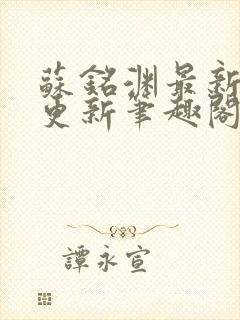 蘇銘淵最新
更新筆趣閣
譚永宣